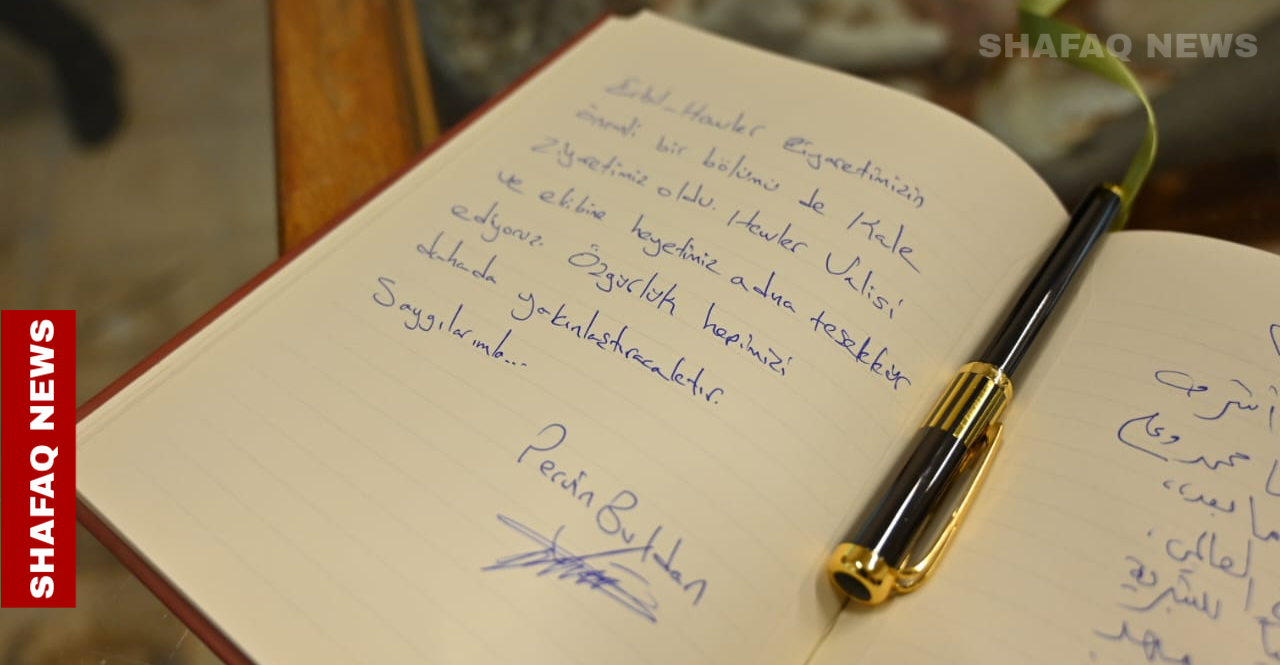 SHAFAQ NEWS
SHAFAQ NEWS
Erbil-Hewler Ziyaretimizin
önemli bir bölümü de Kale
Ziyaretimiz oldu. Hewler Valisi
ve ekibine heyetimiz adına teşekkür
ediyoruz. Özgürlük hepimizi
dahada yakınlaştıracaktır.
Saygılarımla...
Pervin Buldan
أشرف
محمد وعلى
بعد،،
العالي.
للبشرية